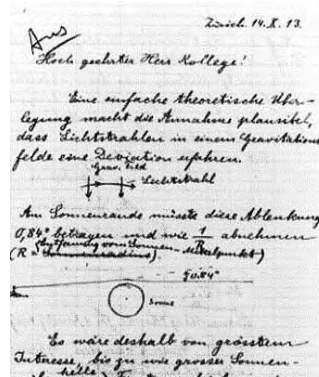 Zürich. 14. X. 13.
Hoch geehrter Herr Kollege!
Eine einfache theoretische Über-
legung macht die Annahme plausibel,
dass Lichtstrahlen in einem Gravitations
felde eine Deviation erfahren.
Grav. Feld
Lichtstrahl
Am Sonnenrande müsste diese Ablenkung
0,84" betragen und wie 1/R abnehmen
(R = Entfernung vom Sonnen-Mittelpunkt)
0.84"
Sonne
Es wäre deshalb von grösstem
Interesse, bis zu wie grosser Sonnen-